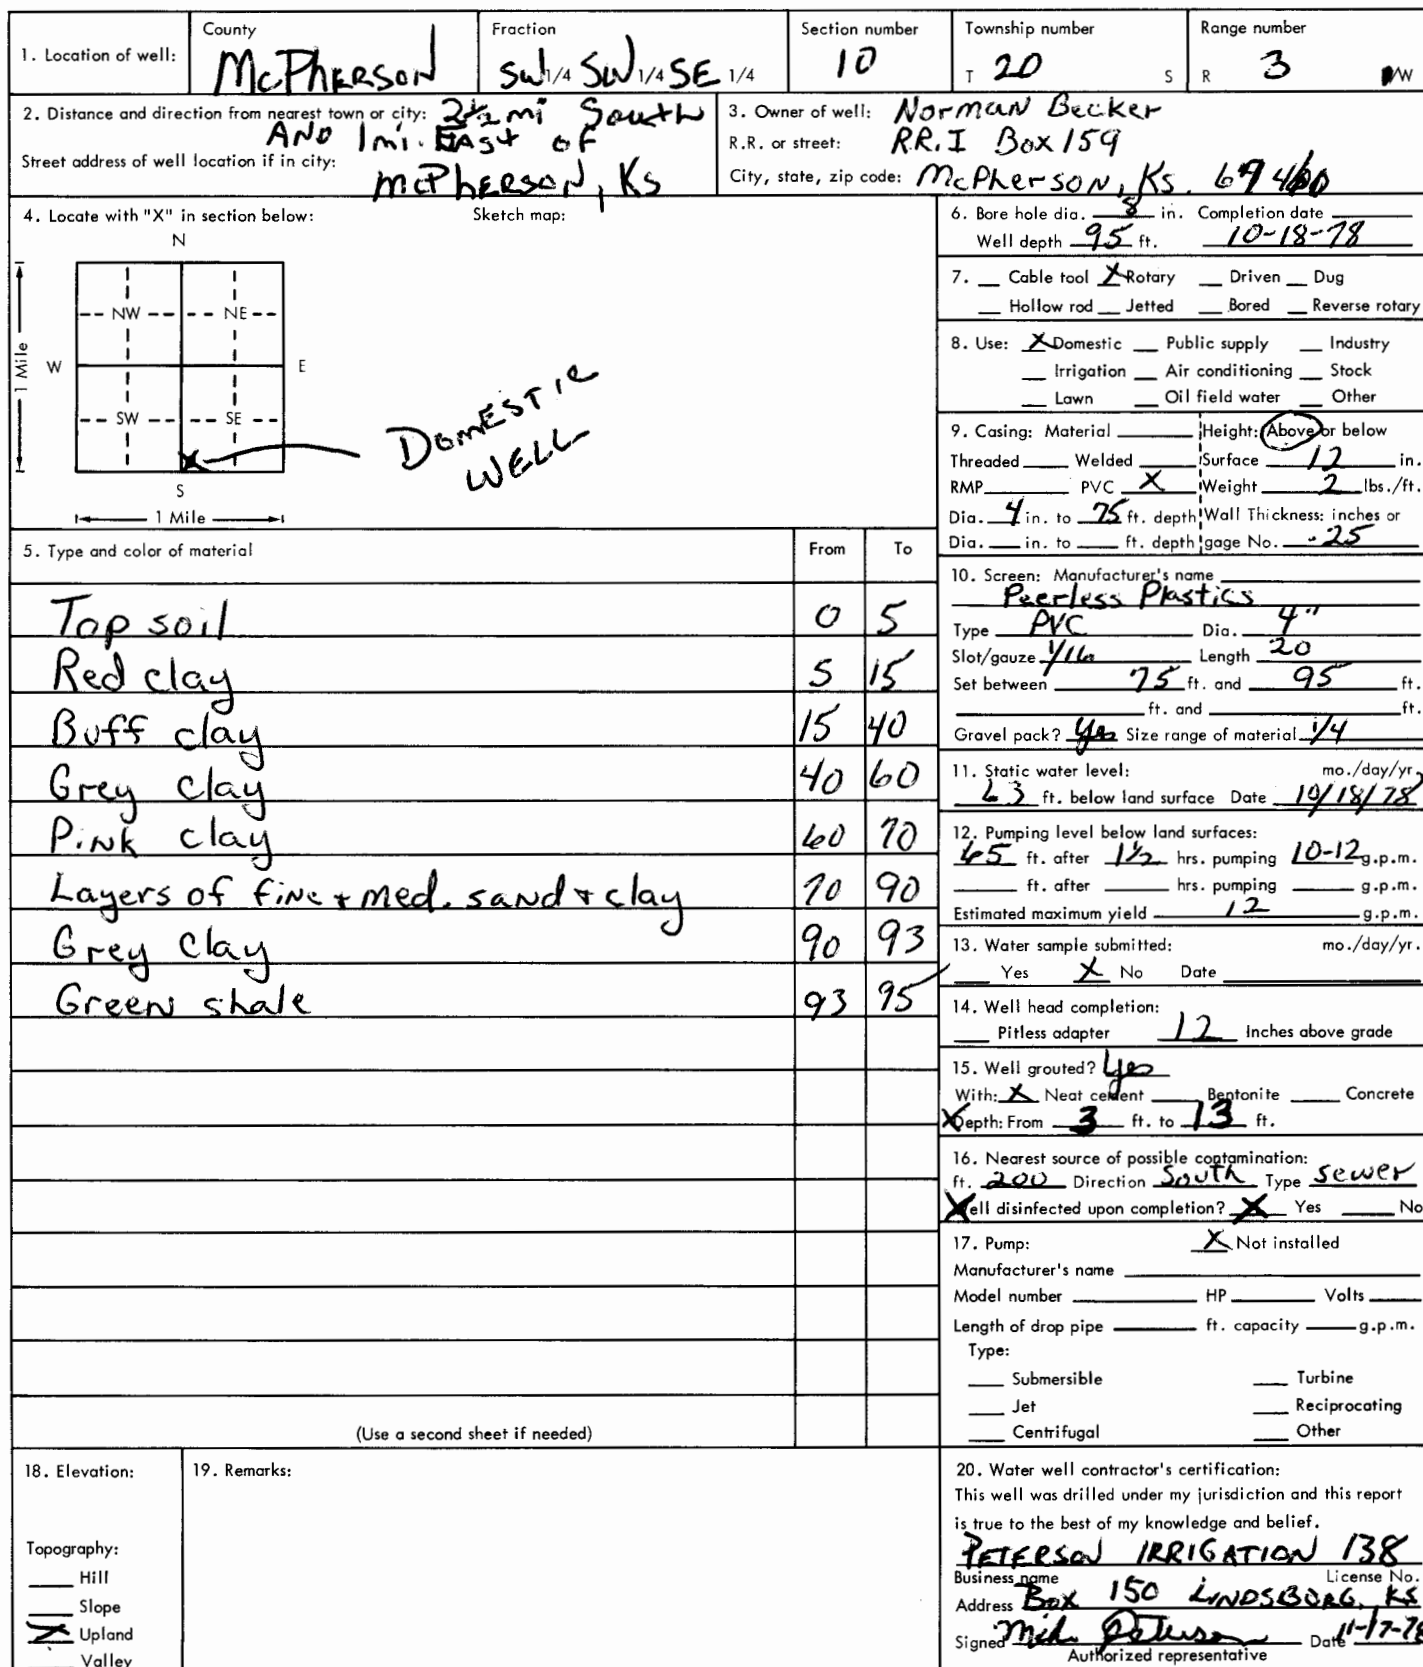 1. Location of well: County McPherson Fraction SW 1/4 SW 1/4 SE 1/4 Section number 10 Township number T 20 S Range number R 3 W
2. Distance and direction from nearest town or city: 2½ mi South
AND 1 mi. East of
Street address of well location if in city:
McPherson, Ks
3. Owner of well: Norman Becker
R.R. or street: R.R.I Box 159
City, state, zip code: McPherson, Ks.
4. Locate with "X" in section below: Sketch map:
N
NW NE
W E
1 Mile
SW SE
S
1 Mile
DOMESTIC
WELL
5. Type and color of material From To
Top soil 0 5
Red clay 5 15
Buff clay 15 40
Grey clay 40 60
Pink clay 60 70
Layers of fine + med. sand + clay 70 90
Grey clay 90 93
Green shale 93 95
(Use a second sheet if needed)
6. Bore hole dia. 8 in. Completion date
Well depth 95 ft. 10-18-78
7. __ Cable tool X Rotary __ Driven __ Dug
__ Hollow rod __ Jetted __ Bored __ Reverse rotary
8. Use: X Domestic __ Public supply __ Industry
__ Irrigation __ Air conditioning __ Stock
__ Lawn __ Oil field water __ Other
9. Casing: Material ____ Height: Above or below
Threaded ____ Welded ____ Surface 12 in.
RMP ____ PVC X Weight 2 lbs./ft.
Dia. 4 in. to 75 ft. depth Wall Thickness: inches or
Dia. __ in. to __ ft. depth gage No. .25
10. Screen: Manufacturer's name
Peerless Plastics
Type PVC Dia. 4"
Slot/gauze 1/16 Length 20
Set between 75 ft. and 95 ft.
____ ft. and ____ ft.
Gravel pack? Yes Size range of material 1/4
11. Static water level: mo./day/yr.
63 ft. below land surface Date 10/18/78
12. Pumping level below land surfaces:
65 ft. after 1½ hrs. pumping 10-12 g.p.m.
____ ft. after ____ hrs. pumping ____ g.p.m.
Estimated maximum yield 12 g.p.m.
13. Water sample submitted: mo./day/yr.
__ Yes X No Date ____
14. Well head completion:
__ Pitless adapter 12 Inches above grade
15. Well grouted? Yes
With: X Neat cement ____ Bentonite ____ Concrete
Depth: From 3 ft. to 13 ft.
16. Nearest source of possible contamination:
ft. 200 Direction South Type sewer
Well disinfected upon completion? X Yes ____ No
17. Pump: X Not installed
Manufacturer's name ____
Model number ____ HP ____ Volts ____
Length of drop pipe ____ ft. capacity ____ g.p.m.
Type:
__ Submersible __ Turbine
__ Jet __ Reciprocating
__ Centrifugal __ Other
18. Elevation:
Topography:
__ Hill
__ Slope
X Upland
__ Valley
19. Remarks:
20. Water well contractor's certification:
This well was drilled under my jurisdiction and this report
is true to the best of my knowledge and belief.
PETERSON IRRIGATION 138
Business name License No.
Address Box 150 LINDSBORG, KS
Signed Mike Peterson Date 11-17-78
Authorized representative